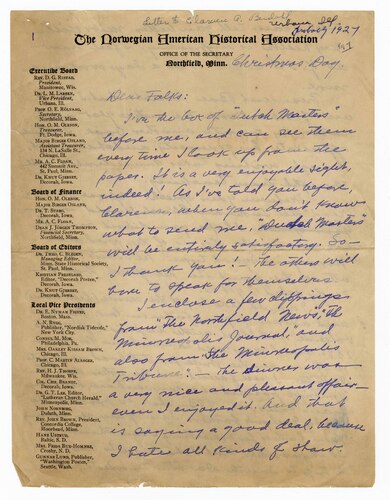 Letter to Clarence A. Berdahl
Urbana, Ill.
1927
The Norwegian American Historical Association
OFFICE OF THE SECRETARY
Northfield, Minn.
Christmas Day.
Executive Board
REV. D. G. RISTAD,
President,
Manitowoc, Wis.
DR. L. M. LARSEN,
Vice President,
Urbana, Ill.
PROF. O. E. RÖLVAAG,
Secretary,
Northfield, Minn.
HON. O. M. OLESON,
Treasurer,
Ft. Dodge, Iowa.
MAJOR BIRGER OSLAND,
Assistant Treasurer,
134 N. LaSalle St.,
Chicago, Ill.
MR. A. C. FLOAN,
642 Summit Ave.,
St. Paul, Minn.
DR. KNUT GJERSET,
Decorah, Iowa.
Board of Finance
HON. O. M. OLESON,
MAJOR BIRGER OSLAND,
DR. T. STABO,
Decorah, Iowa.
MR. A. C. FLOAN,
DEAN J. JORGEN THOMPSON,
Financial Secretary,
Northfield, Minn.
Board of Editors
DR. THEO. C. BLEGEN,
Managing Editor,
Minn. State Historical Society,
St. Paul, Minn.
KRISTIAN PRESTGARD,
Editor, "Decorah Posten",
Decorah, Iowa.
DR. KNUT GJERSET,
Decorah, Iowa.
Local Vice Presidents
DR. E. NYMAN FIGVED,
Boston, Mass.
A. N. RYGG,
Publisher, "Nordisk Tidende,"
New York City.
CONSUL M. MOE,
Philadelphia, Pa.
MRS. OAKLEY KISSAM BROWN,
Chicago, Ill.
PROF. C. MARTIN ALSAGER,
Chicago, Ill.
REV. H. J. THORPE,
Milwaukee, Wis.
CHR. BRANDT,
Decorah, Iowa.
DR. G. T. LEE, Editor
"Lutheran Church Herald,"
Minneapolis, Minn.
JOHN NORWEBB,
Duluth, Minn.
REV. JOHN BROWN, President
Concordia College,
Moorhead, Minn.
HANS USTRUD,
Baltic, S. D.
MRS. FRIDA BUE-HOMNES,
Crosby, N. D.
GUNNAR LUND, Publisher,
"Washington Posten,"
Seattle, Wash.
Dear Folks:
I've the box of "Dutch Masters"
before me, and can see them
every time I look up from the
paper. It is a very enjoyable sight,
indeed! As I've told you before,
Clarence, when you don't know
what to send me, "Dutch Masters"
will be entirely satisfactory. So—
I thank you! The others will
have to speak for themselves
I enclose a few clippings
from "The Northfield News", "The
Minneapolis Journal," and
also from The Minneapolis
Tribune. — The dinner was
a very nice and pleasant affair—
even I enjoyed it. And that
is saying a good deal, because
I hate all kinds of show.